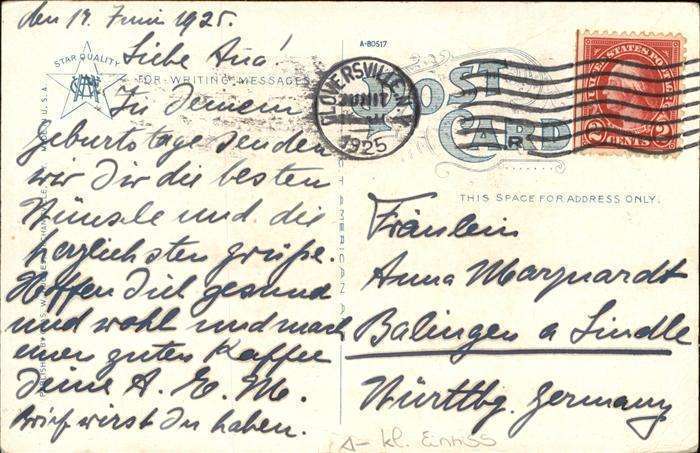 den 17. Juni 1925.
Liebe Ana!
Zu Deinem
geburtstage senden
wir Dir die besten
Wünsche und die
herzlichsten grüße.
Hoffen Dich gesund
und wohl und mach
einen guten Kaffee
deine A. E. M.
Brief wirst Du haben.
STAR QUALITY
FOR WRITING MESSAGES
MADE IN U.S.A.
A-80517
POST
CARD
GLOVERSVILLE, N.Y.
1925
UNITED STATES POSTAGE
2 CENTS 2
THIS SPACE FOR ADDRESS ONLY.
Fräulein
Anna Marquardt
Balingen a
Württbg. Germany
A- kl. Einriss